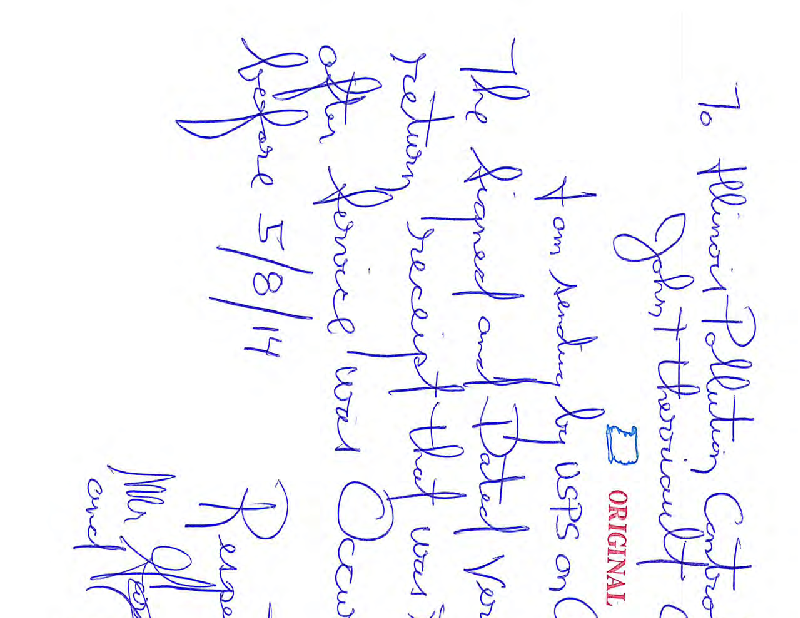 To Illinois Pollution Contro
John T Therriault C
ORIGINAL
I am sending by USPS on
The Signed and Dated Ver
return receipt that was
after Service was Occur
before 5/8/14
Respe
Mr
and